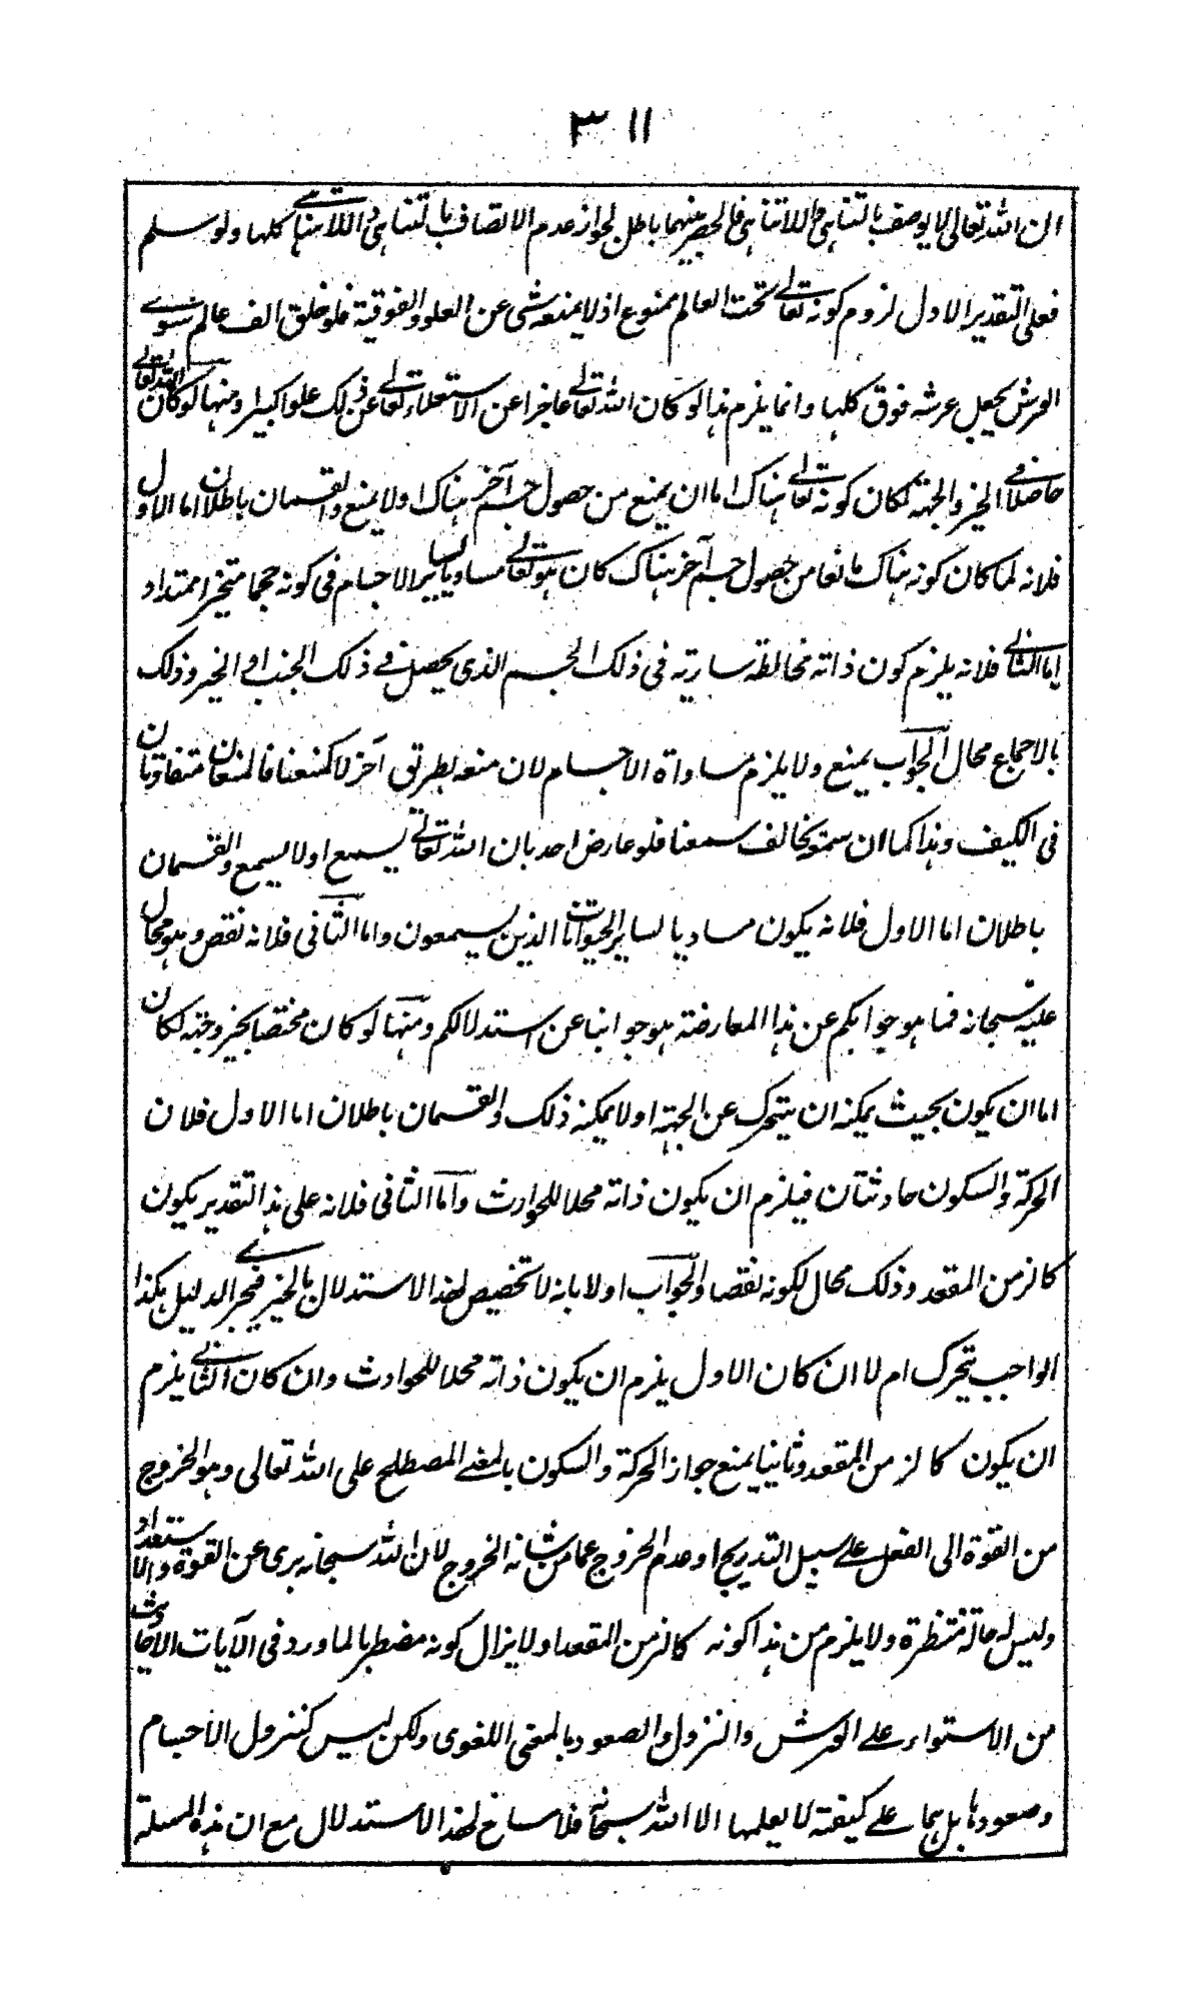 ٣١١
ان الله تعالى لا يوصف بالتناهى واللاتناهى فالحصر منهما باطل لجواز عدم الاتصاف بالتناهى واللاتناهى كلها ولو سلم
فعلى التقدير الاول لزوم كونه تعالى تحت العالم ممنوع اذ لا يمنعه شى عن العلو والفوقية فلو خلق الف عالم سوى
العرش يجعل عرشه فوق كلها وانما يلزم هذا لو كان الله تعالى عاجزا عن الاستعلاء تعالى عن ذلك علوا كبيرا ومنها لو كان الله تعالى
حاصلا فى الحيز والجهة لكان كونه تعالى هناك اما ان يمنع من حصول جسم آخر هناك او لا يمنع والقسمان باطلان اما الاول
فلانه لما كان كونه هناك مانعا من حصول جسم آخر هناك كان هو تعالى مساويا لساير الاجسام فى كونه حجما متحيزا ممتدا و
اما الثانى فلانه يلزم كون ذاته مخالطة سارية فى ذلك الجسم الذى يحصل فى ذلك الجنب او الحيز وذلك
بالاجماع محال الجواب يمنع ولا يلزم مساواة الاجسام لان منعه بطريق آخر لا كمنعنا فالمنعان متفاوتان
فى الكيف وهذا كما ان سمعه يخالف سمعنا فلو عارض احد بان الله تعالى يسمع او لا يسمع والقسمان
باطلان اما الاول فلانه يكون مساويا لساير الحيوانات الذين يسمعون واما الثانى فلانه نقص وهو محال
عليه سبحانه فما هو جوابكم عن هذا المعارضة هو جوابنا عن استدلالكم ومنها لو كان مختصا بحيز وجهة لكان
اما ان يكون بحيث يمكنه ان يتحرك عن الجهة او لا يمكنه ذلك والقسمان باطلان اما الاول فلان
الحركة والسكون حادثتان فيلزم ان يكون ذاته محلا للحوادث واما الثانى فلانه على هذا التقدير يكون
كالزمن المقعد وذلك محال لكونه نقصا والجواب اولا بانه لا تخصيص لهذا الاستدلال بالحيز فيجرى الدليل هكذا
الواجب يتحرك ام لا ان كان الاول يلزم ان يكون ذاته محلا للحوادث وان كان الثانى يلزم
ان يكون كالزمن المقعد وثانيا يمنع جواز الحركة والسكون بالمعنى المصطلح على الله تعالى وهو الخروج
من القوة الى الفعل على سبيل التدريج او عدم الخروج عما من شانه الخروج لان الله سبحانه برى عن القوة والاستعداد
وليس له حالة منتظرة ولا يلزم من هذا كونه كالزمن المقعد او لا يزال كونه مضطربا لما ورد فى الآيات الاحاديث
من الاستواء على العرش والنزول والصعود بالمعنى اللغوى ولكن ليس كنزول الاجسام
وصعودها بل هما على كيفية لا يعلمها الا الله سبحانه فلا ساغ لهذا الاستدلال مع ان هذه المسئلة